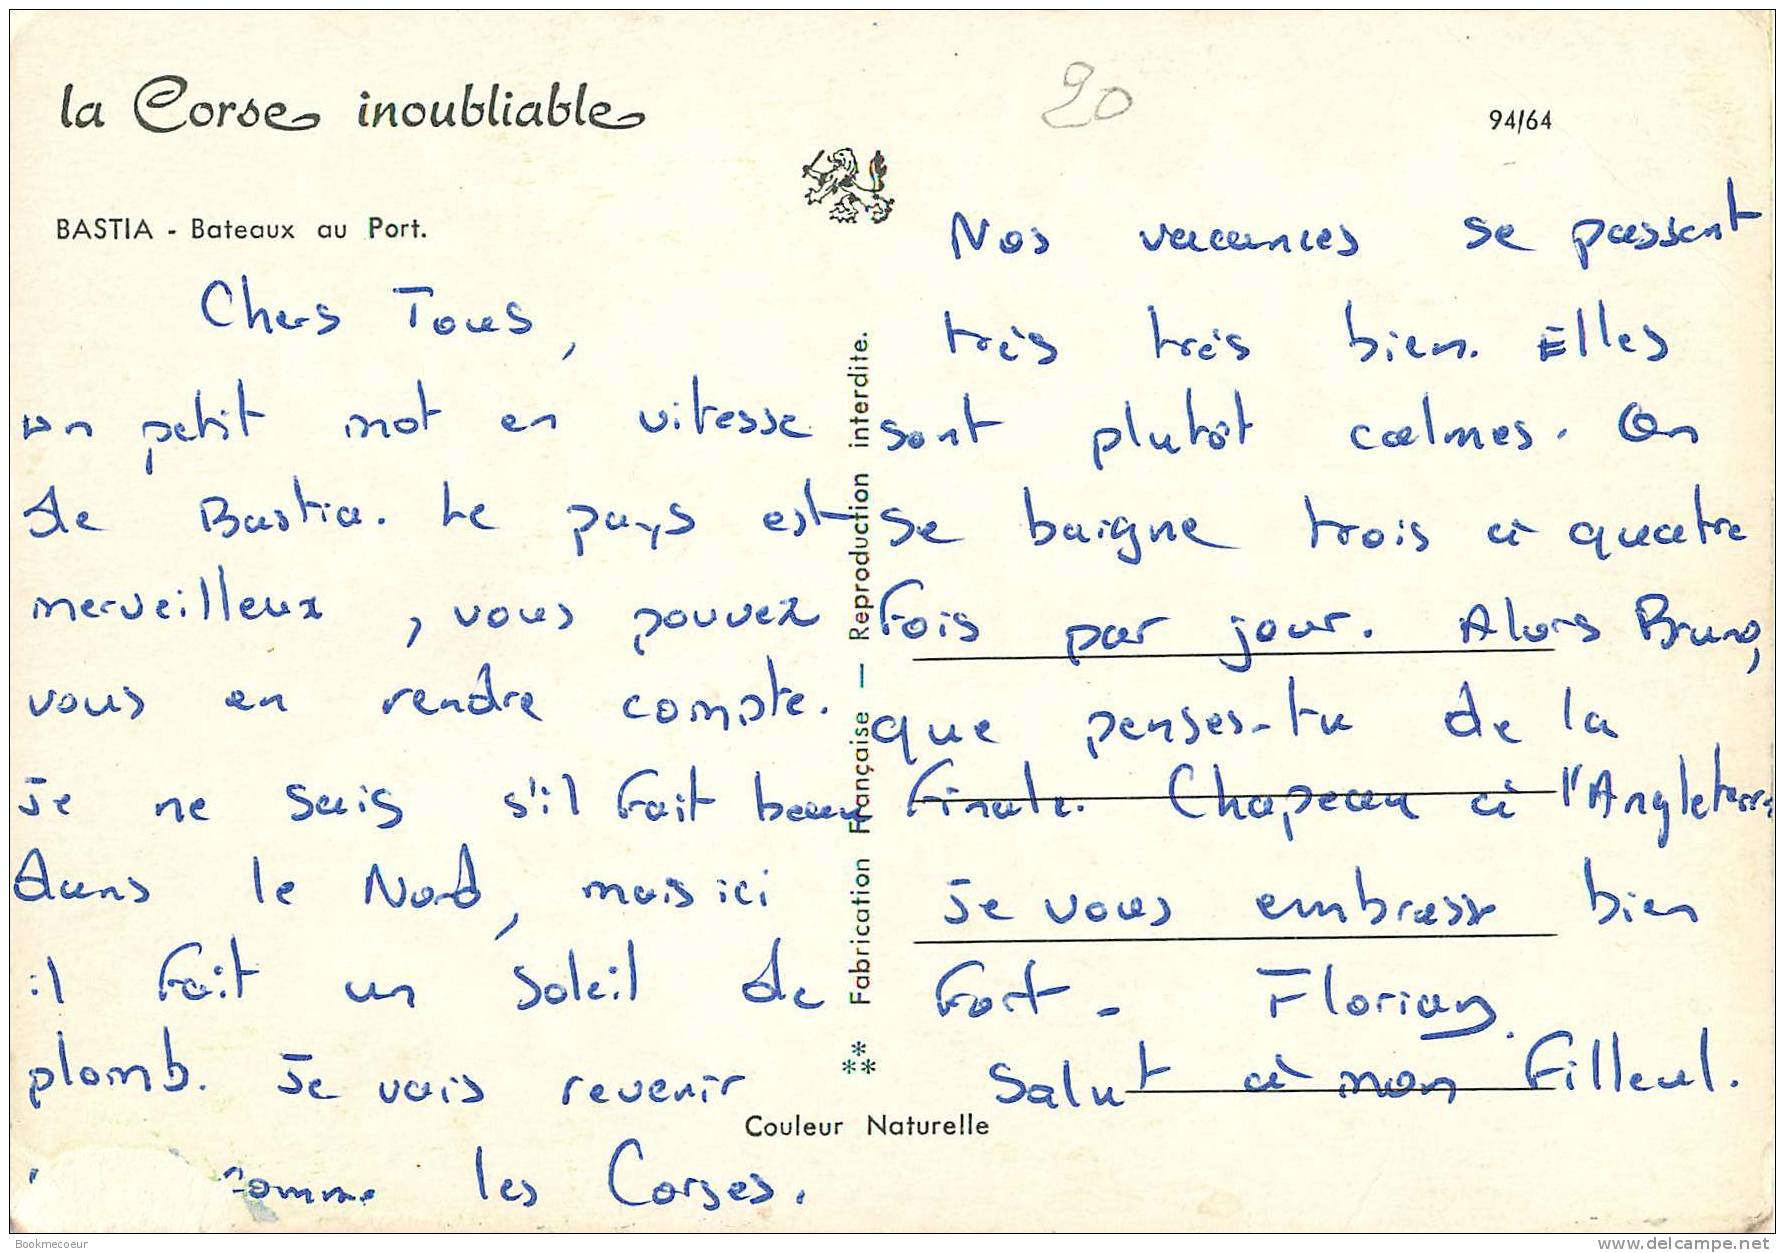 la Corse inoubliable
20
94/64
BASTIA - Bateaux au Port.
Chers Tous,
un petit mot en vitesse
de Bastia. Le pays est
merveilleux, vous pouvez
vous en rendre compte.
Je ne sais s'il fait beau
dans le Nord, mais ici
il fait un soleil de
plomb. Je vais revenir
comme les Corses.
Fabrication Française — Reproduction interdite.
Couleur Naturelle
Nos vacances se passent
très très bien. Elles
sont plutôt calmes. On
se baigne trois à quatre
fois par jour. Alors Bruno,
que penses-tu de la
finale. Chapeau à l'Angleterre
Je vous embrasse bien
fort - Florian.
Salut à mon filleul.
Bookmecoeur
www.delcampe.net